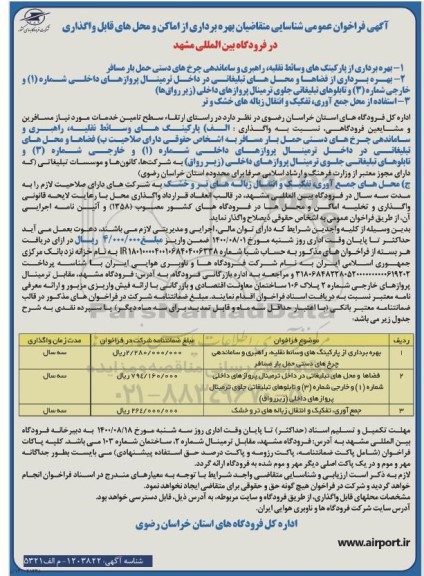 آگهی فراخوان عمومی شناسایی متقاضیان بهره برداری از اماکن و محل های قابل واگذاری
در فرودگاه بین المللی مشهد
۱- بهره برداری از پارکینگ های وسائط نقلیه، راهبری و ساماندهی چرخ های دستی حمل بار مسافر
۲- بهره برداری از فضاها و محل های تبلیغاتی در داخل ترمینال پروازهای داخلی شماره (۱) و
خارجی شماره (۳) و تابلوهای تبلیغاتی جلوی ترمینال پروازهای داخلی (زیر رواق‌ها)
۳- استفاده از محل جمع آوری، تفکیک و انتقال زباله های خشک و تر
اداره کل فرودگاه های استان خراسان رضوی در نظر دارد در راستای ارتقاء سطح تامین خدمات مورد نیاز مسافرین
و مشایعین فرودگاهی، نسبت به واگذاری : الف) پارکینگ های وسائط نقلیه، راهبری و
ساماندهی چرخ های دستی حمل بار مسافر به اشخاص حقوقی دارای صلاحیت ب) فضاها و محل های
تبلیغاتی در داخل ترمینال پروازهای داخلی شماره (۱) و خارجی شماره (۳) و
تابلوهای تبلیغاتی جلوی ترمینال پروازهای داخلی (زیر رواق) به شرکت‌ها، کانون‌ها و موسسات تبلیغاتی (که
دارای مجوز معتبر از وزارت فرهنگ و ارشاد اسلامی صرفا برای محدوده استان خراسان رضوی)
ج) محل های جمع آوری، تفکیک و انتقال زباله های تر و خشک به شرکت های دارای صلاحیت لازم را به
مدت سه سال در فرودگاه بین المللی مشهد، در قالب انعقاد قرارداد واگذاری محل با رعایت لایحه قانونی
واگذاری و تخلیه اماکن و محل ها در فرودگاه های کشور مصوب (۱۳۵۸) و آئین نامه اجرایی
آن، از طریق فراخوان عمومی به اشخاص حقوقی ذیصلاح واگذار نماید
بدین وسیله از کلیه واجدین شرایط که دارای توان مالی، اجرایی و مدیریتی لازم می باشند، دعوت بعمل می آید
حداکثر تا پایان وقت اداری روز شنبه مورخ ۱۴۰۰/۰۸/۰۱ ضمن واریز مبلغ ۴/۰۰۰/۰۰۰ ریال در ازای دریافت
پروازهای خارجی شماره ۲ پلاک ۱۰۶ ساختمان معاونت اقتصادی و بازرگانی با ارائه فیش واریزی مزبور و ارائه معرفی
نامه معتبر نسبت به دریافت اسناد فراخوان اقدام نمایند. مبلغ ضمانتنامه شرکت در فراخوان های مذکور در قالب
ضمانتنامه معتبر بانکی (با اعتبار حداقل سه ماه و قابل تمدید برای سه ماه دیگر) یا سپرده نقدی به شرح
جدول زیر می باشد:
ردیف موضوع فراخوان مبلغ ضمانتنامه شرکت در فراخوان مدت زمان واگذاری
۱ بهره برداری از پارکینگ های وسائط نقلیه، راهبری و ساماندهی چرخ های دستی حمل بار مسافر ۲/۲۸۰/۰۰۰/۰۰۰ ریال سه سال
۲ فضاها و محل های تبلیغاتی در داخل ترمینال پروازهای داخلی شماره (۱) و خارجی شماره (۳) و تابلوهای تبلیغاتی جلوی ترمینال پروازهای داخلی (زیر رواق) ۷۹۲/۱۶۰/۰۰۰ ریال سه سال
۳ جمع آوری، تفکیک و انتقال زباله های تر و خشک ۲۶۲/۰۰۰/۰۰۰ ریال سه سال
مهلت تکمیل و تسلیم اسناد (حداکثر) تا پایان وقت اداری روز سه شنبه مورخ ۱۴۰۰/۰۸/۱۸ به دبیرخانه فرودگاه
بین المللی مشهد به آدرس: فرودگاه مشهد، مقابل ترمینال شماره ۲، ساختمان شماره ۱۰۳ می باشد. کلیه پاکات
فراخوان (شامل پاکت ضمانتنامه، پاکت رزومه و پاکت درصد حق استفاده پیشنهادی) می بایست بطور جداگانه
مهر و موم و در یک پاکت اصلی دیگر مهر و موم شده به فرودگاه ارائه گردد.
لازم به ذکر است ارزیابی و شناسایی متقاضی واجد شرایط با توجه به معیارهای مندرج در اسناد فراخوان انجام
خواهد گردید و شرکت در فراخوان هیچ گونه حق و حقوقی برای متقاضی ایجاد نخواهد نمود.
مشخصات محلهای قابل واگذاری، از طریق فرودگاه و سایت مربوطه، به آدرس ذیل، قابل دسترسی خواهد بود.
آدرس سایت شرکت فرودگاه ها و ناوبری هوایی ایران.
www.airport.ir
اداره کل فرودگاه های استان خراسان رضوی
شناسه آگهی: ۱۲۰۳۸۲۲ - م الف ۵۳۲۱